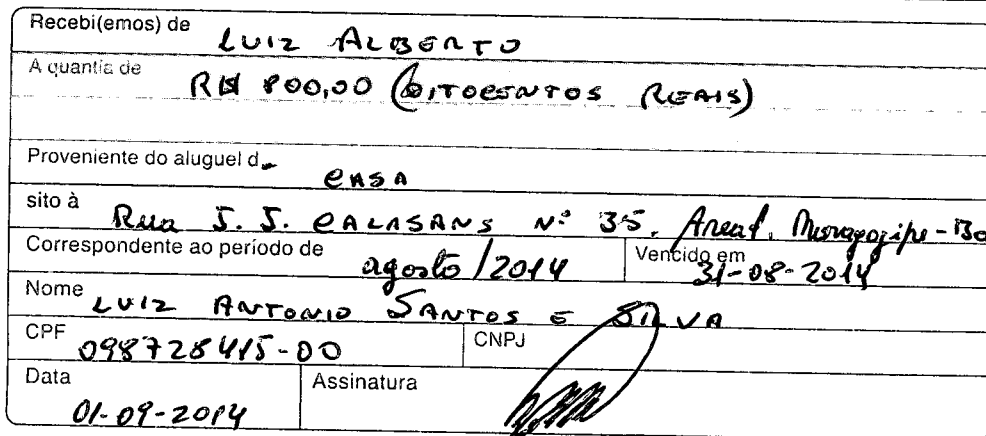 Recebi(emos) de LUIZ ALBERTO
A quantia de R$ 800,00 (OITOCENTOS REAIS)
Proveniente do aluguel d CASA
sito à Rua J. J. CALASANS Nº 35, Areal, Maragogipe - Ba
Correspondente ao período de agosto / 2014 Vencido em 31-08-2014
Nome LUIZ ANTONIO SANTOS E SILVA
CPF 098728415-00 CNPJ
Data 01-09-2014 Assinatura